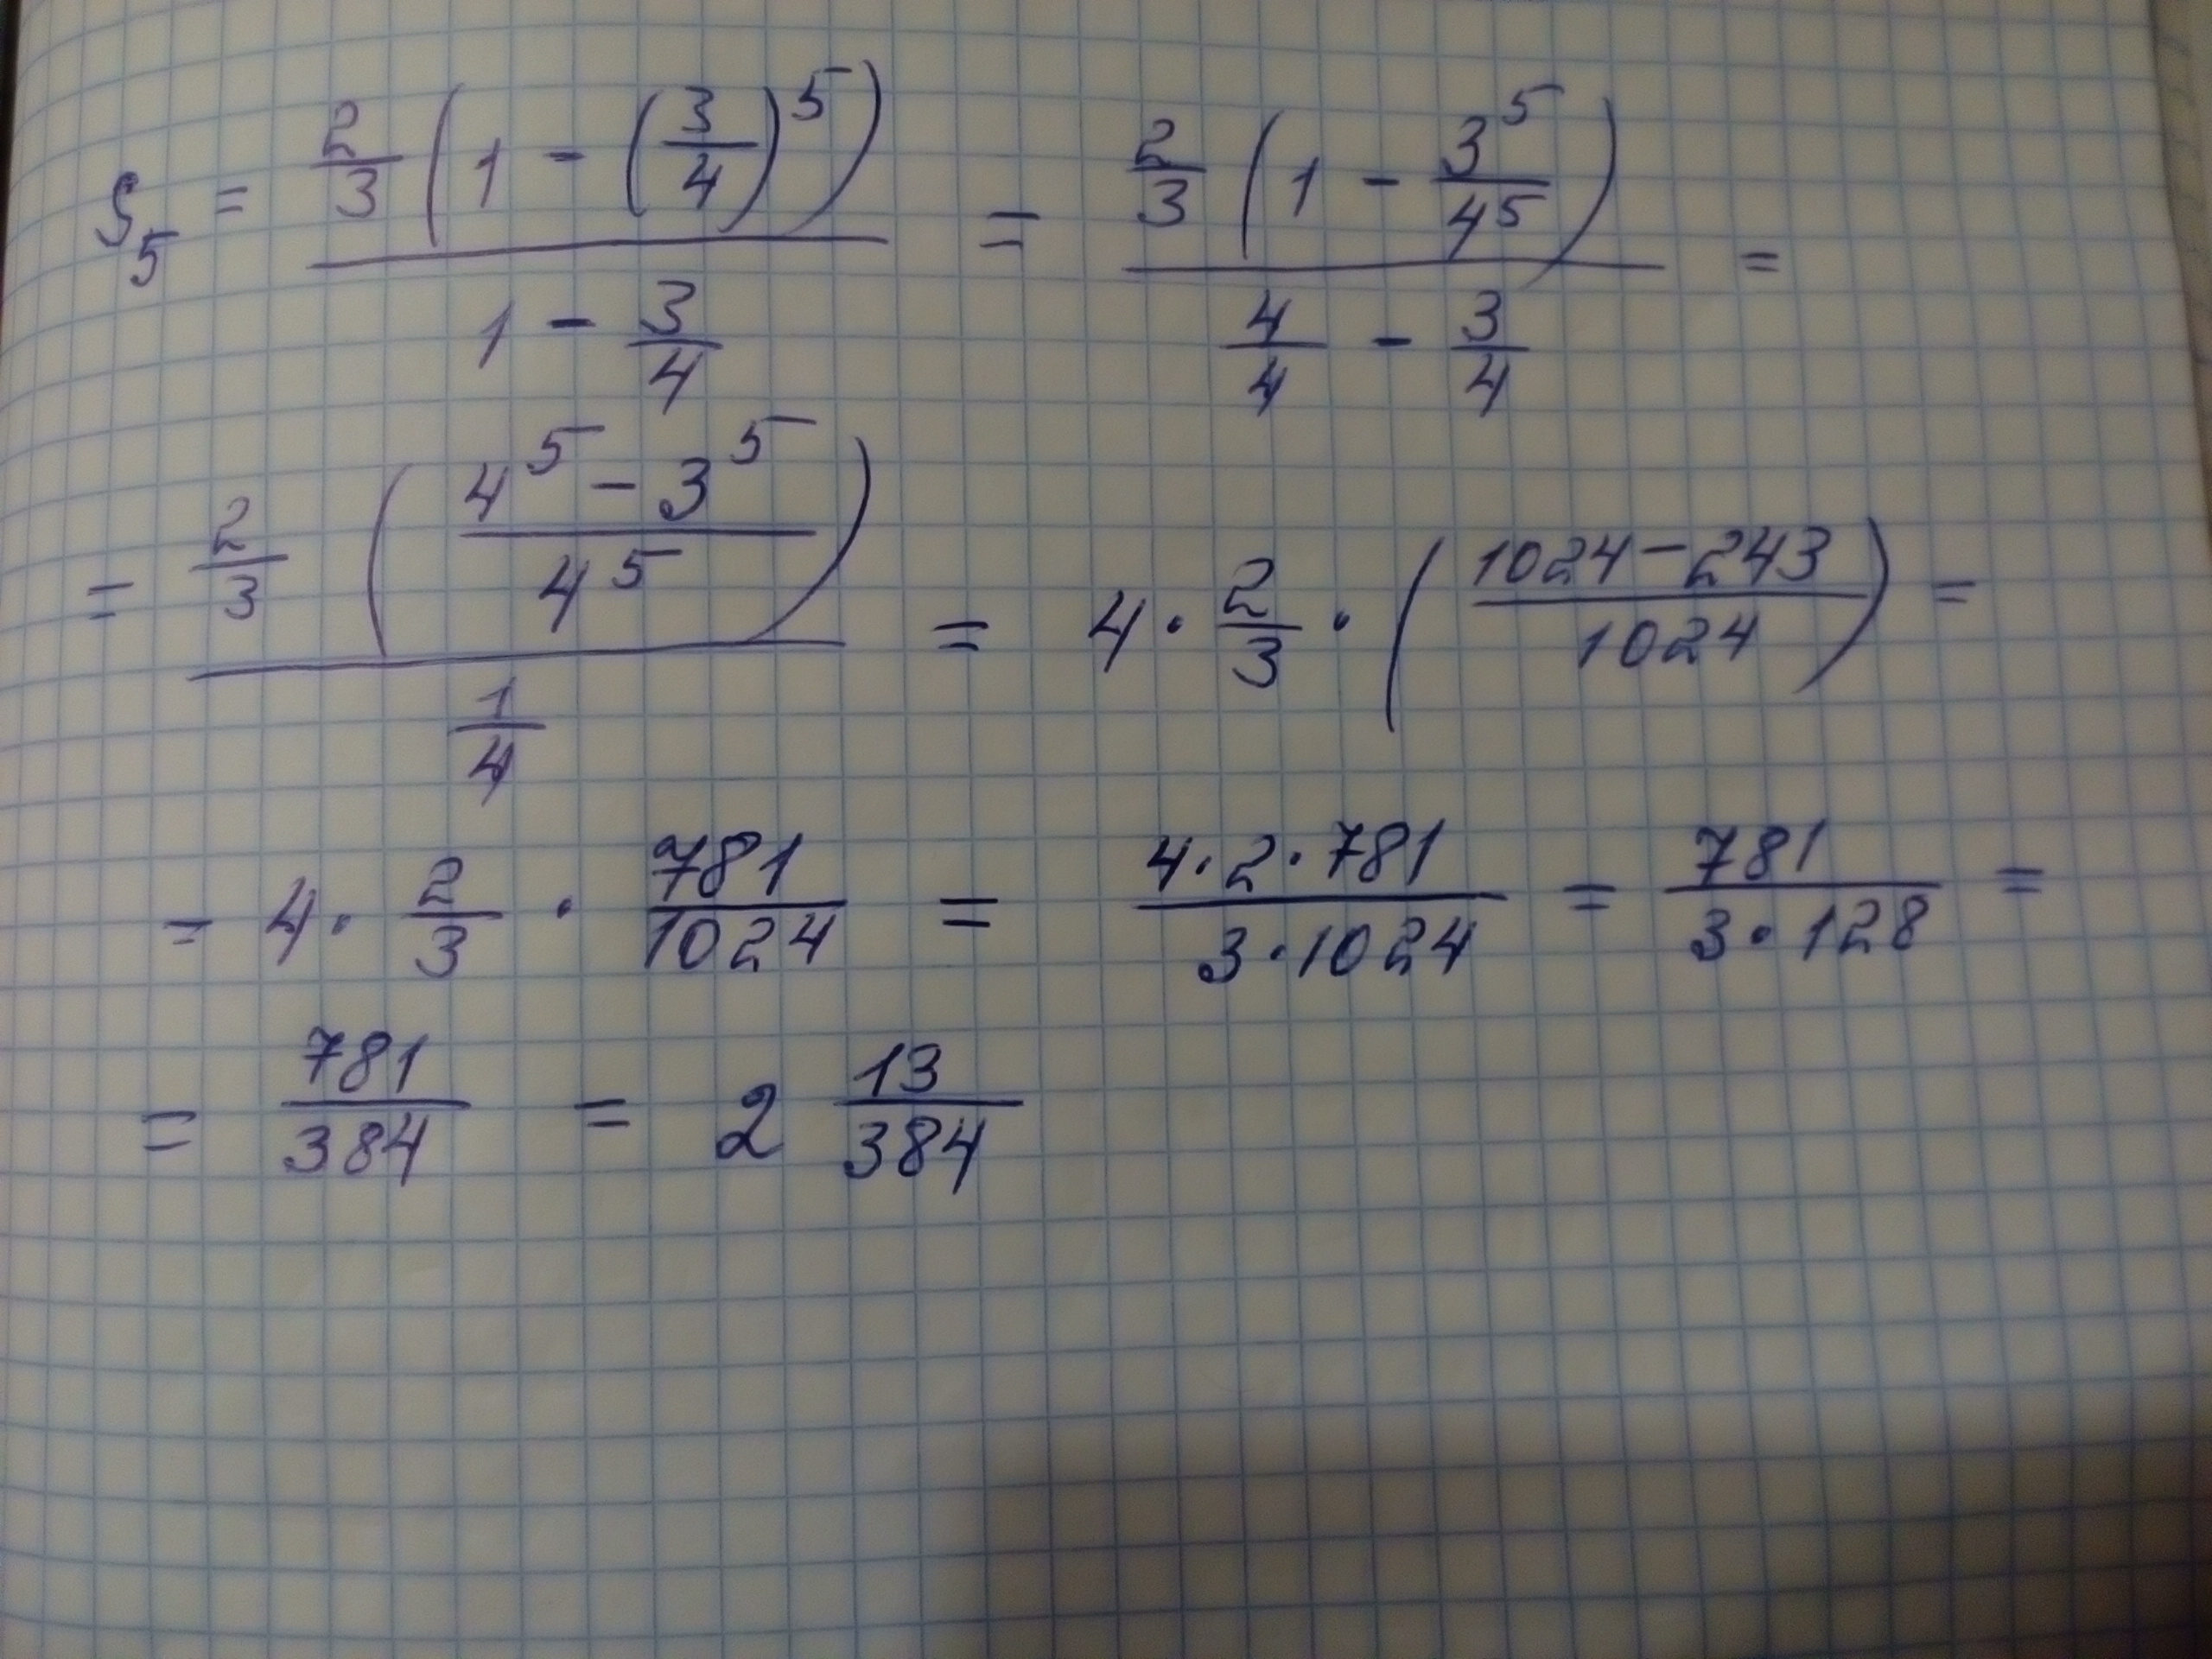 S₅ = 2/3 (1 - (3/4)⁵) / (1 - 3/4) = 2/3 (1 - 3⁵/4⁵) / (4/4 - 3/4) =
= 2/3 ((4⁵ - 3⁵)/4⁵) / (1/4) = 4 · 2/3 · ((1024 - 243)/1024) =
= 4 · 2/3 · 781/1024 = (4 · 2 · 781)/(3 · 1024) = 781/(3 · 128) =
= 781/384 = 2 13/384